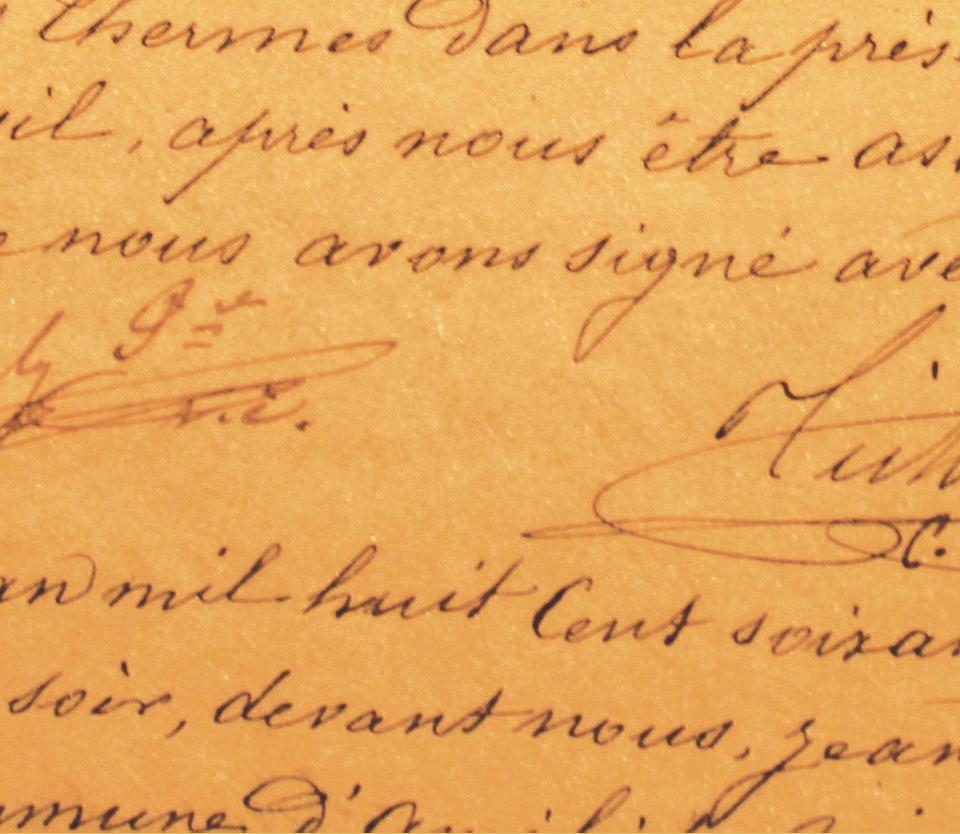 thermes dans la prés
il, après nous être as
nous avons signé ave
C.
an mil huit Cent soixan
soir, devant nous, jean
mmune d'